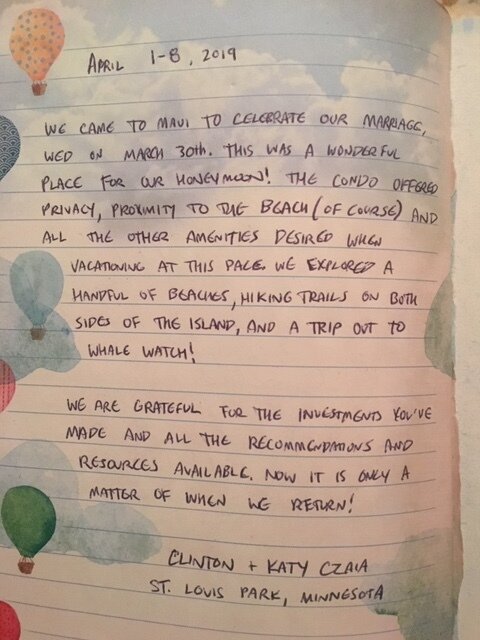 APRIL 1-8, 2019
WE CAME TO MAUI TO CELEBRATE OUR MARRIAGE,
WED ON MARCH 30th. THIS WAS A WONDERFUL
PLACE FOR OUR HONEYMOON! THE CONDO OFFERED
PRIVACY, PROXIMITY TO THE BEACH (OF COURSE) AND
ALL THE OTHER AMENITIES DESIRED WHEN
VACATIONING AT THIS PLACE. WE EXPLORED A
HANDFUL OF BEACHES, HIKING TRAILS ON BOTH
SIDES OF THE ISLAND, AND A TRIP OUT TO
WHALE WATCH!
WE ARE GRATEFUL FOR THE INVESTMENTS YOU'VE
MADE AND ALL THE RECOMMENDATIONS AND
RESOURCES AVAILABLE. NOW IT IS ONLY A
MATTER OF WHEN WE RETURN!
CLINTON + KATY CZAIA
ST. LOUIS PARK, MINNESOTA